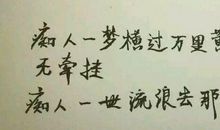 痴人一梦横过万里黄
无牵挂
痴人一世流浪去那